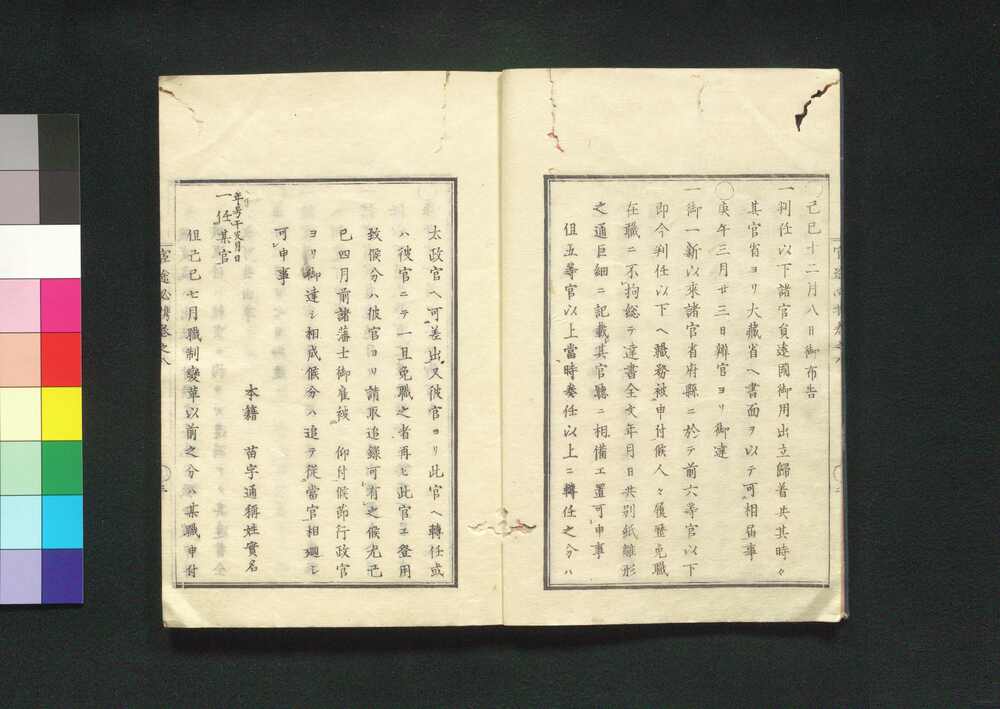 ◯己巳十二月八日御布告
一判任以下諸官員遠國御用出立歸着共其時々
其官省ヨリ大藏省ヘ書面ヲ以テ可相届事
◯庚午三月廿三日辨官ヨリ御達
一御一新以来諸官省府縣ニ於テ前六等官以下
即今判任以下ヘ職務被申付候人々履歴免職
在職ニ不拘総テ達書全文年月日共別紙雛形
之通巨細ニ記載其官聽ニ相備エ置可申事
但五等官以上當時奏任以上ニ轉任之分ハ
太政官ヘ可差出又彼官ヨリ此官ヘ轉任或
ハ彼官ニテ一旦免職之者再ヒ此官エ登用
致候分ハ彼官ヨリ請取追録可有之候尤己
巳四月前諸藩士御雇被 仰付候節行政官
ヨリ御達シ相成候分ハ追テ從當官相廻シ
可申事
本籍 苗字通稱姓實名
年号干支月日
一任某官
但己巳七月職制變革以前之分ハ某職申付
官途必携巻之八